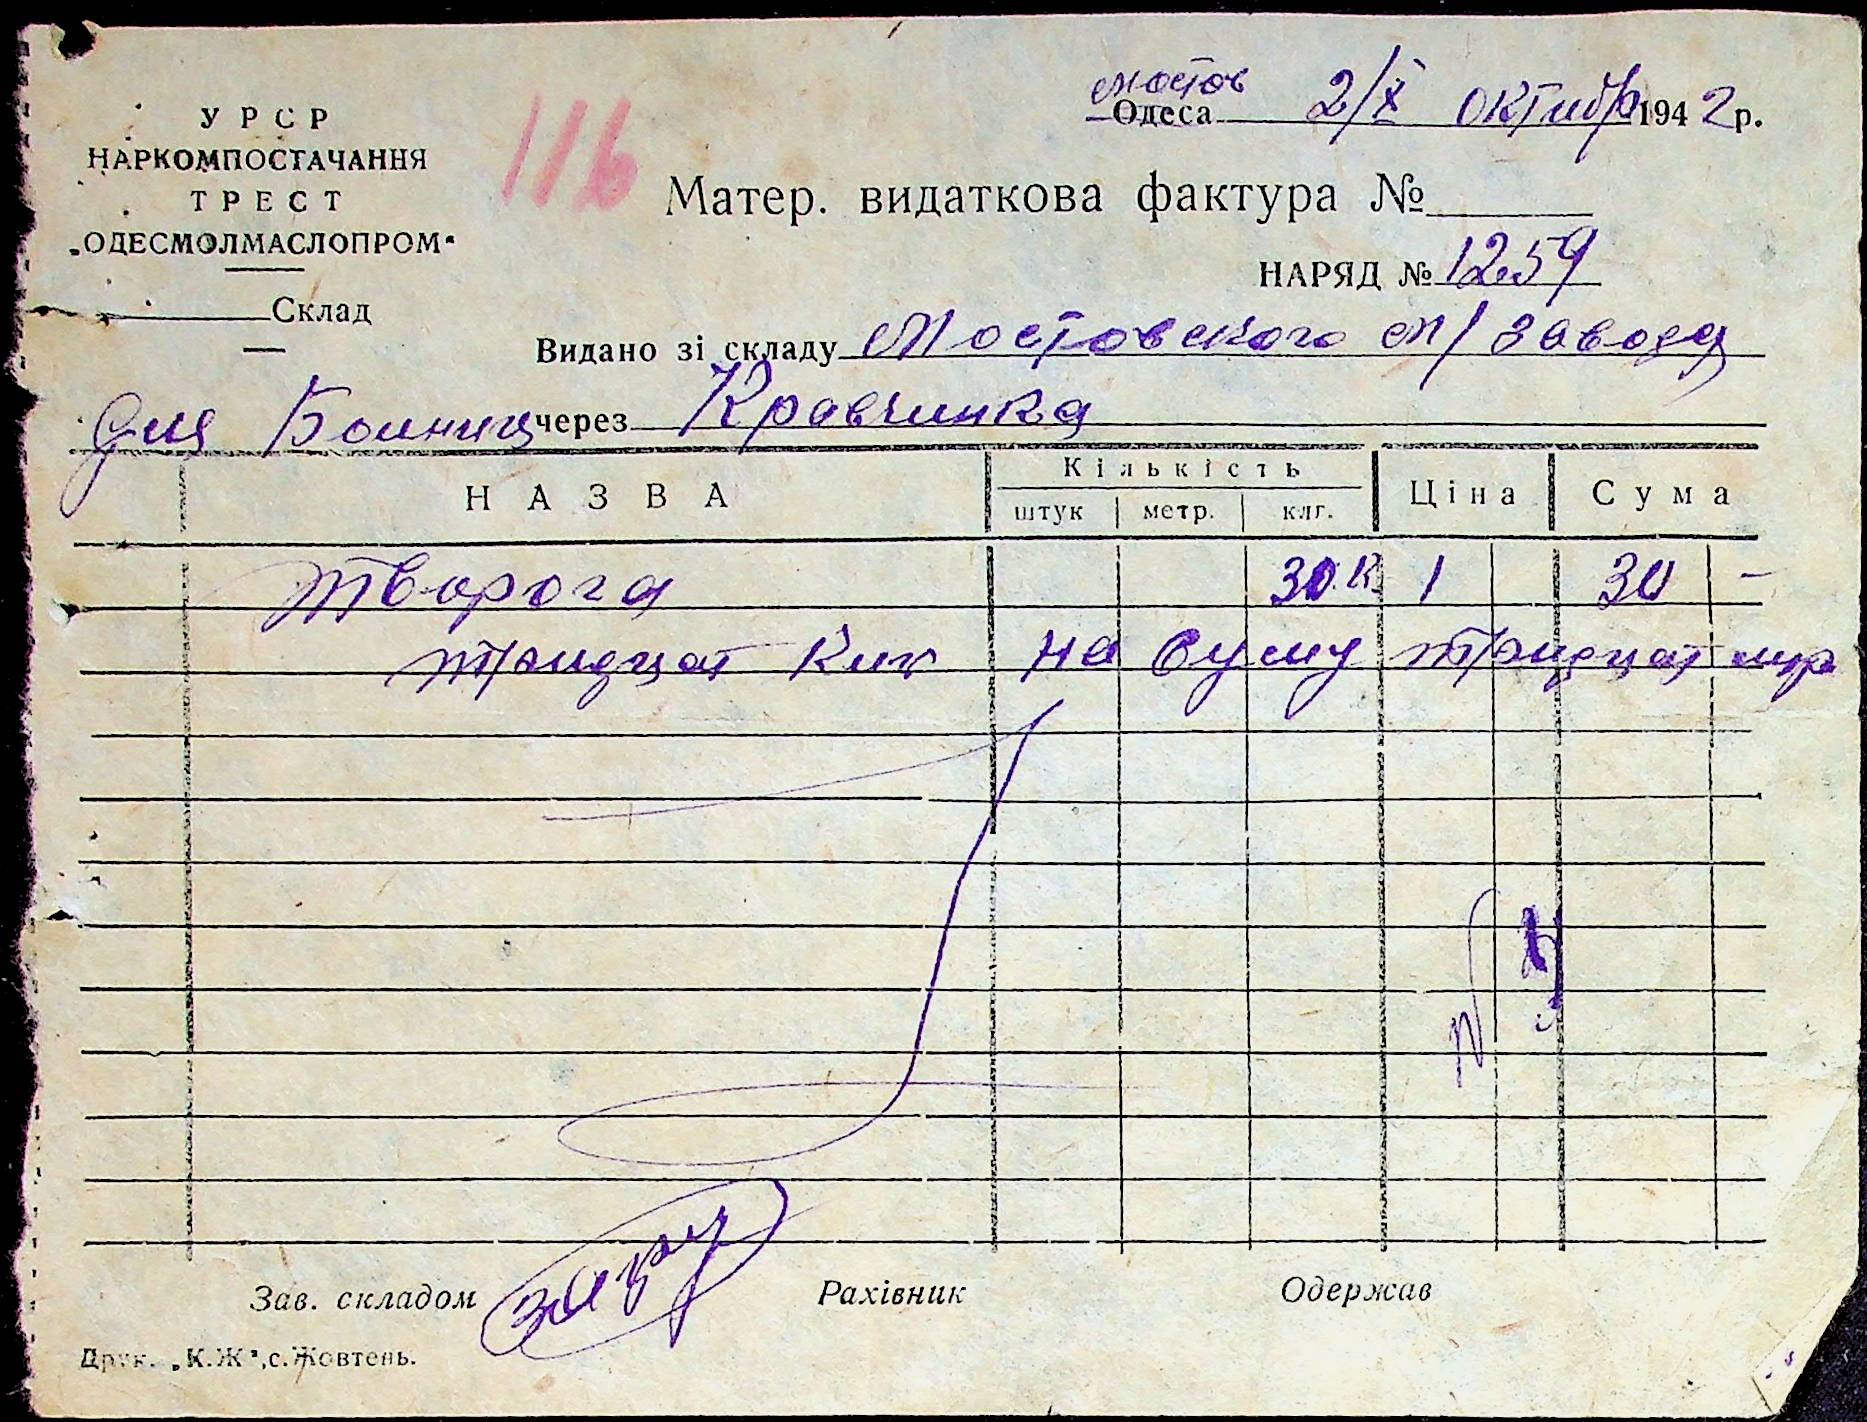 УРСР
НАРКОМПОСТАЧАННЯ
ТРЕСТ
„ОДЕСМОЛМАСЛОПРОМ"
Склад
116
Мостов
Одеса 2/X октября 1942 р.
Матер. видаткова фактура №
НАРЯД № 1259
Видано зі складу Мостовского м/завода
для Болниц через Кравчинка
НАЗВА Кількість Ціна Сума
штук метр. клг.
Творога 30 к 1 30 –
Тридцат кил на суму тридцат мар
Зав. складом Рахівник Одержав
Друк. „К.Ж", с. Жовтень.